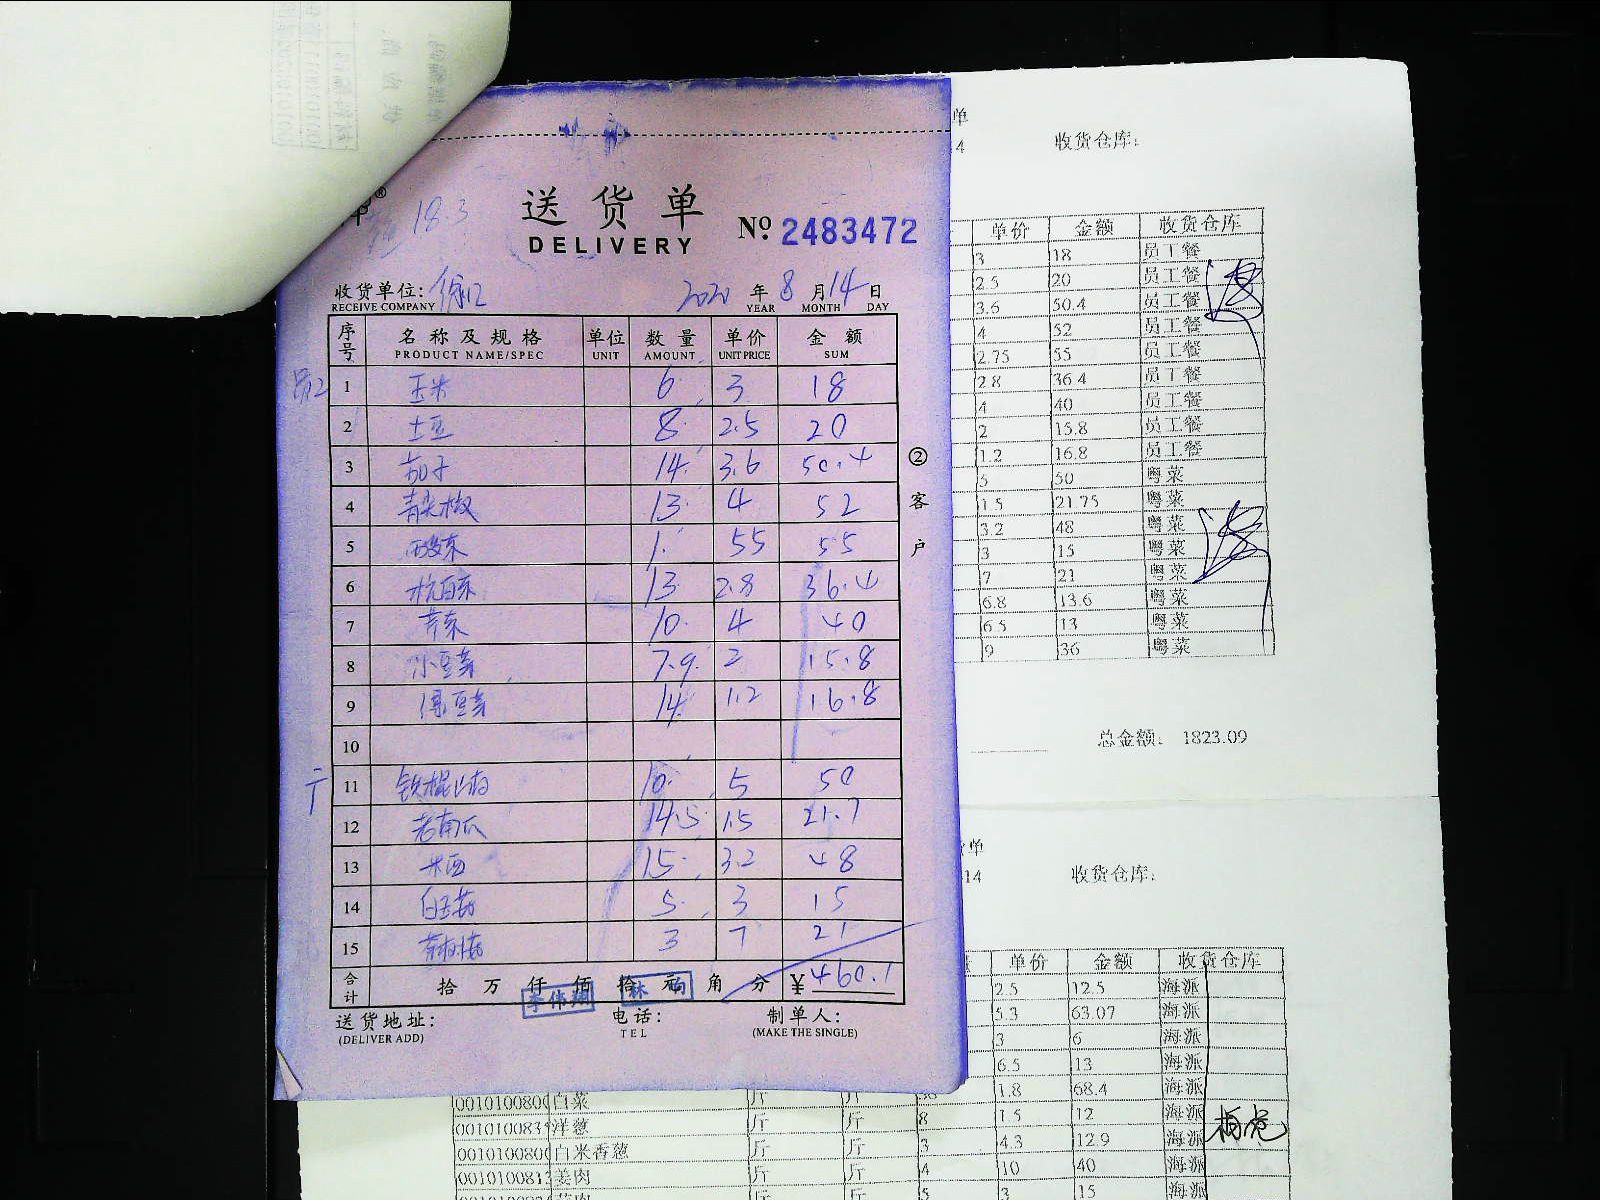 18.3
送货单
DELIVERY
№ 2483472
收货单位:
RECEIVE COMPANY
2020 年 8 月 14 日
YEAR MONTH DAY
序号 名称及规格 单位 数量 单价 金额
PRODUCT NAME/SPEC UNIT AMOUNT UNIT PRICE SUM
1 玉米 6 3 18
2 土豆 8 2.5 20
3 茄子 14 3.6 50.4
4 青尖椒 13 4 52
5 酸菜 1 55 55
6 杭白菜 13 2.8 36.4
7 青菜 10 4 40
8 小豆芽 7.9 2 15.8
9 绿豆芽 14 1.2 16.8
10
11 铁棍山药 10 5 50
12 老南瓜 14.5 1.5 21.7
13 15 3.2 48
14 白玉菇 5 3 15
15 茶树菇 3 7 21
合计 拾 万 仟 佰 拾 元 角 分 ¥460.1
送货地址: 电话: 制单人:
(DELIVER ADD) TEL (MAKE THE SINGLE)
②客户
单
4 收货仓库:
单价 金额 收货仓库
3 18 员工餐
2.5 20 员工餐
3.6 50.4 员工餐
4 52 员工餐
2.75 55 员工餐
2.8 36.4 员工餐
4 40 员工餐
2 15.8 员工餐
1.2 16.8 员工餐
5 50 粤菜
1.5 21.75 粤菜
3.2 48 粤菜
3 15 粤菜
7 21 粤菜
6.8 13.6 粤菜
6.5 13 粤菜
9 36 粤菜
总金额: 1823.09
单
14 收货仓库:
单价 金额 收货仓库
2.5 12.5 海派
5.3 63.07 海派
3 6 海派
6.5 13 海派
1.8 68.4 海派
00101008 白菜 斤 斤 8 1.5 12 海派
00101008 洋葱 斤 斤 3 4.3 12.9 海派
00101008 白米香葱 斤 斤 4 10 40 海派
00101008 姜肉 斤 斤 5 3 15 海派